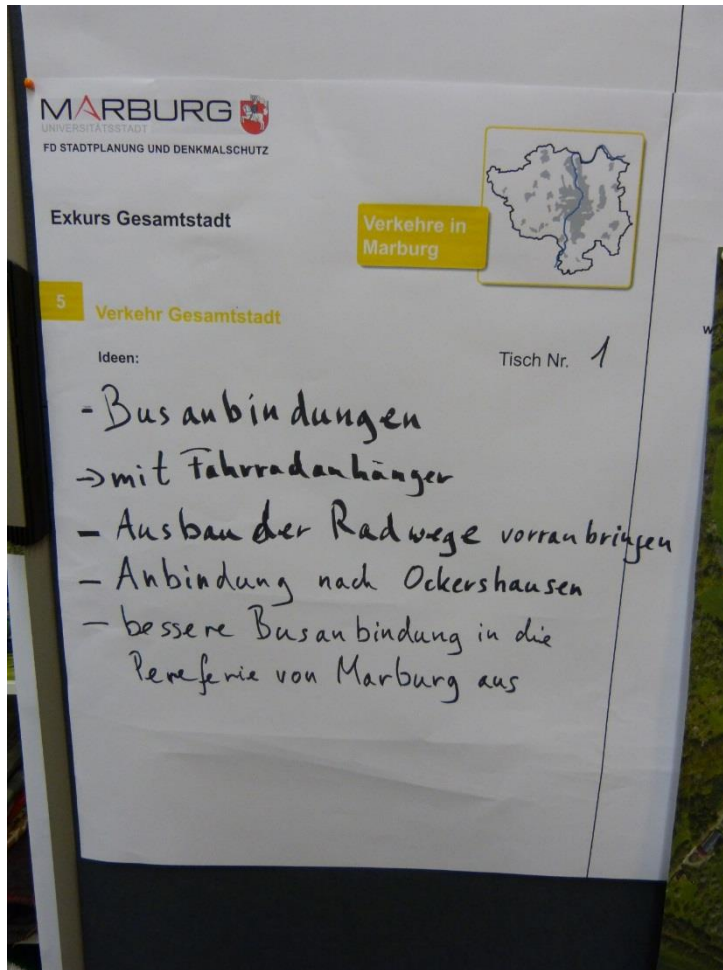 MARBURG
UNIVERSITÄTSSTADT
FD STADTPLANUNG UND DENKMALSCHUTZ
Exkurs Gesamtstadt
Verkehre in
Marburg
5
Verkehr Gesamtstadt
Ideen:
Tisch Nr. 1
- Busanbindungen
→ mit Fahrradanhänger
- Ausbau der Radwege vorranbringen
- Anbindung nach Ockershausen
- bessere Busanbindung in die
Pereferie von Marburg aus
w